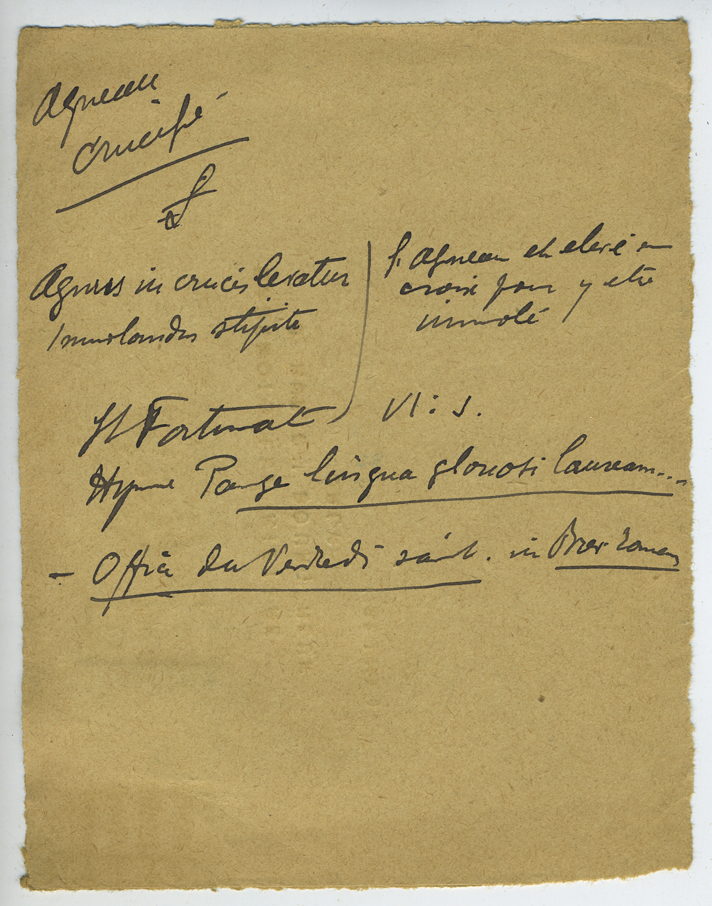 Agneau
crucifié
Agnus in crucis levatur
Immolandus stipite
l'Agneau est elevé en
croix pour y etre
immolé
St Fortunat VI: s.
Hymne Pange lingua gloriosi lauream...
- Office du Vendredi saint. in Brev romain